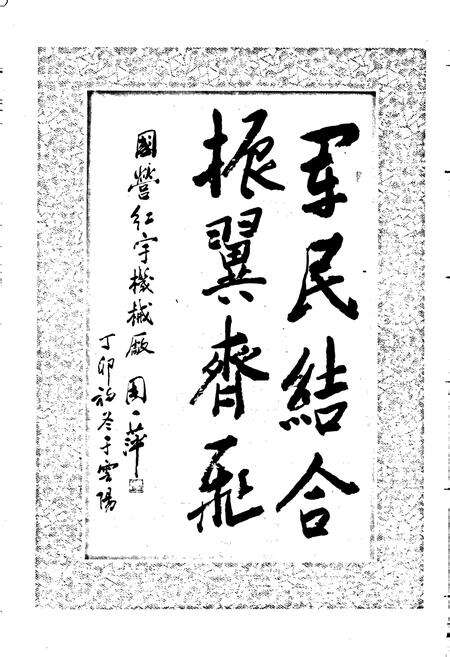 军民结合
振翼齊飛
國營红宇機械厰 周一萍
丁卯初冬于雲陽